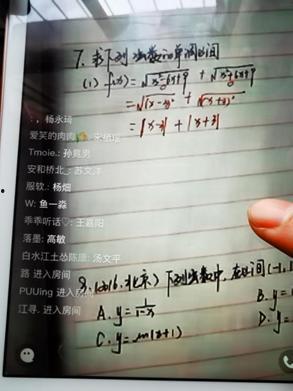 7. 求下列函数的单调区间
(1) f(x) = √x²-6x+9 + √x²+6x+9
= √(x-3)² + √(x+3)²
= |x-3| + |x+3|
: ，杨永琦
爱笑的肉肉
Tmoie.: 孙竟男
安和桥北_: 苏文洋
服软.: 杨畑
W: 鱼一淼
乖乖听话♡: 王嘉阳
落墨: 高敏
白水江土怂陈康: 汤文平
路 进入房间
PUUing 进入房间
江寻. 进入房间
8. (2016.北京) 下列函数中, 在区间(-1, 1
A. y = 1/1-x
B. y =
C. y = ln(x+1)
D. y =